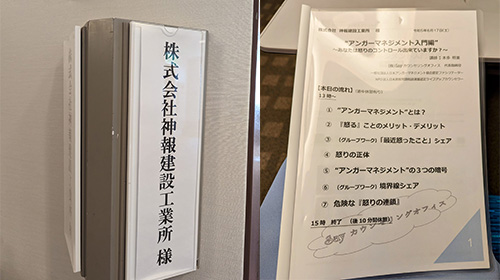 株式会社神報建設工業所 様
株式会社 神報建設工業所 様
“アンガーマネジメント入門編”
～あなたは怒りのコントロール出来ていますか？～
【本日の流れ】
13時～
① “アンガーマネジメント”とは？
② 『怒る』ことのメリット・デメリット
③ (グループワーク)「最近怒ったこと」シェア
④ 怒りの正体
⑤ “アンガーマネジメント”の３つの暗号
⑥ (グループワーク) 境界線シェア
⑦ 危険な『怒りの連鎖』
15時 終了 (後10分間休憩)
カウンセリングオフィス
1